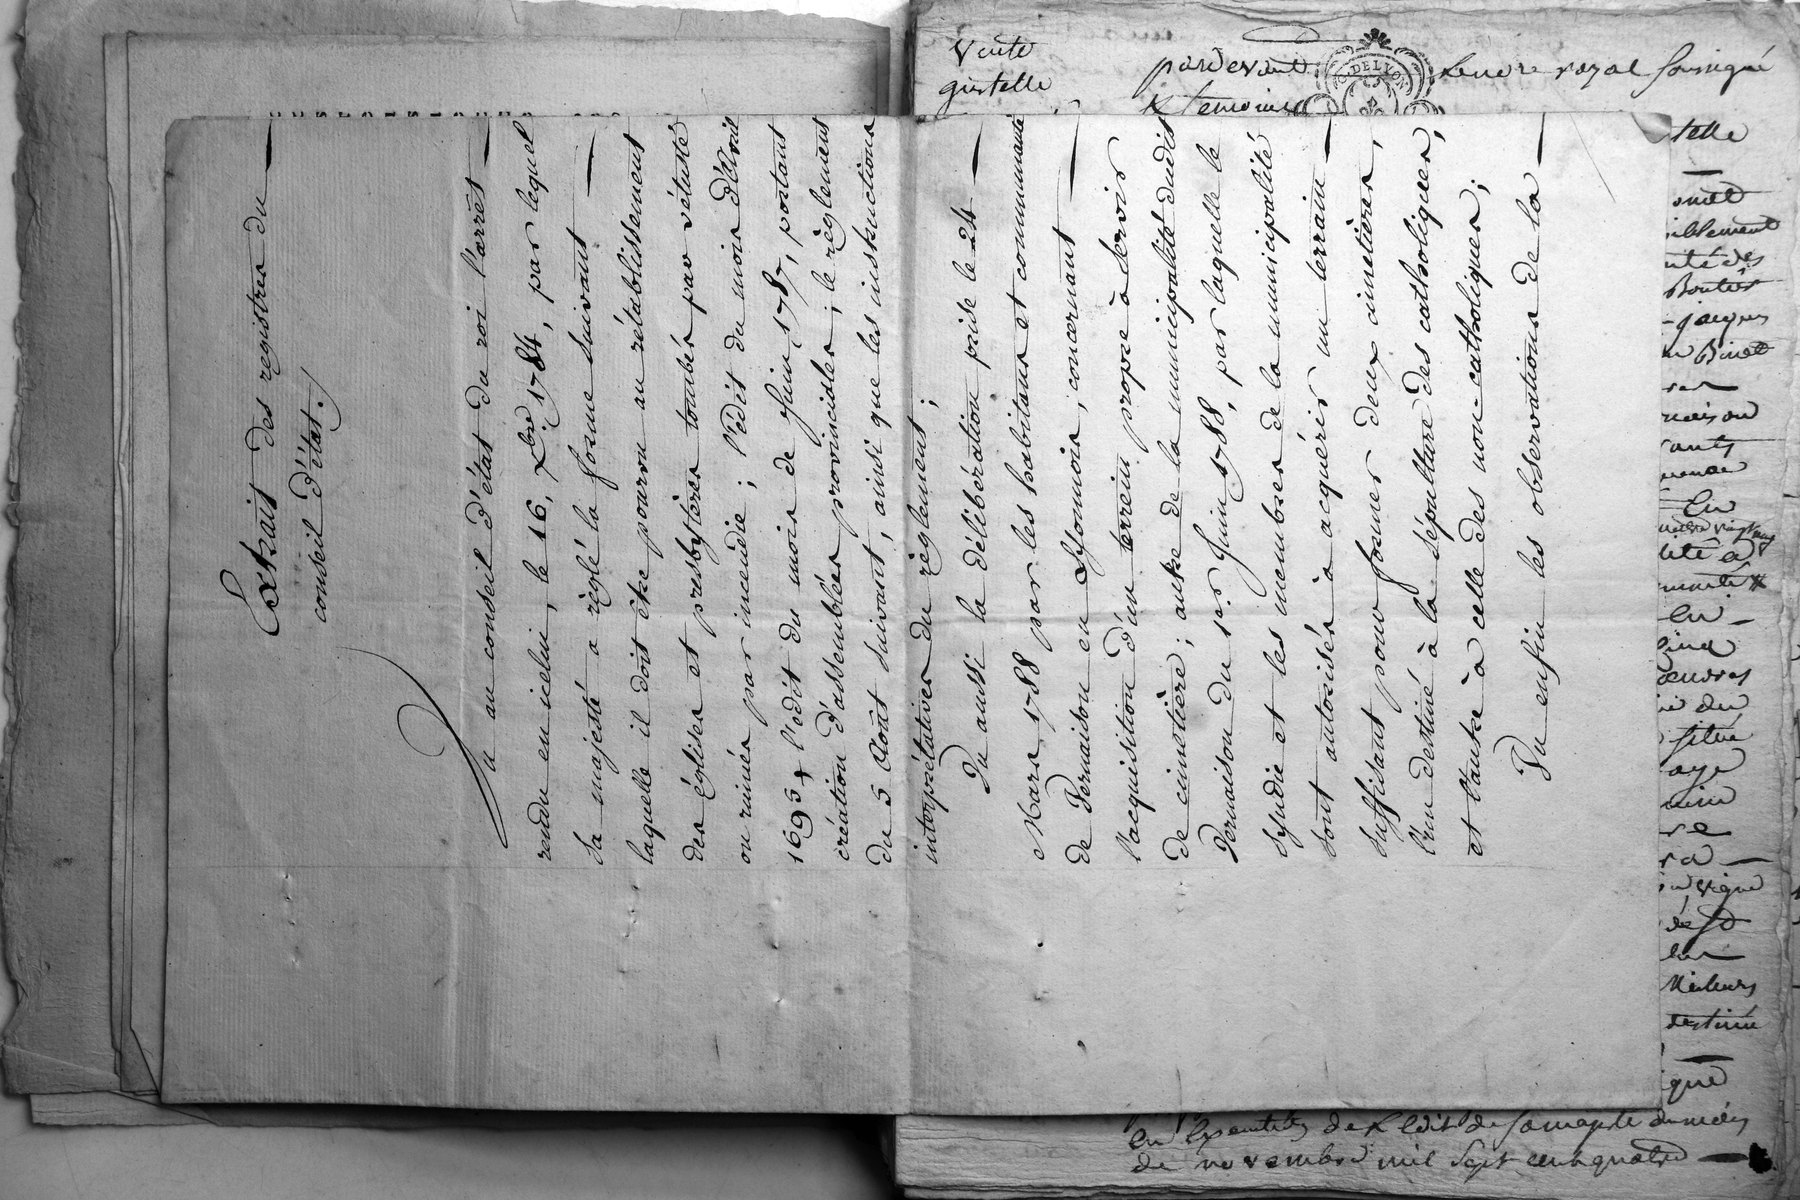 Extrait des registres du
conseil d'état.
Vu au conseil d'état du roi l'arrêt
rendu en icelui, le 16, Xbre 1784, par lequel
sa majesté a règlé la forme suivant
laquelle il doit être pourvu au rétablissement
des églises et presbytères tombés par vétusté
ou ruinés par incendie ; l'édit du mois d'Avril
1695, l'édit du mois de Juin 1787, portant
création d'assemblées provinciales ; le règlement
du 5 Août suivant, ainsi que les instructions
interprétatives du règlement ;
Vu aussi la délibération prise le 24
Mars 1788 par les habitans et communauté
de Dernaison en Lyonnois, concernant
l'acquisition d'un terrein propre à servir
de cimetière ; autre de la municipalité dudit
Vernaison du 1er. Juin 1788, par laquelle le
syndic et les membres de la municipalité
sont autorisés à acquérir un terrain
suffisant pour former deux cimetières,
l'un destiné à la sépulture des catholiques,
et l'autre à celle des non-catholiques ;
Vu enfin les observations de la
Vente
pardevant
DE LYON
royal soussigné
gustelle
& temoins
telle
siblement
uté des
jaques
Binet
maison
En
en
du
située
vigne
Meilleurs
destinée
en de l'edit de sa majesté du mois
de novembre mil sept cent quatre